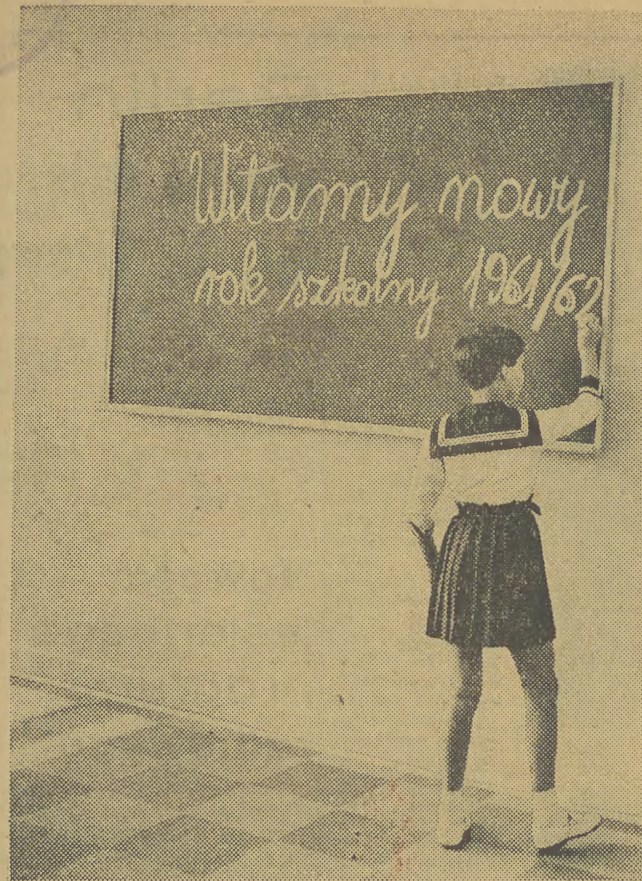 Witamy nowy
rok szkolny 1961/62